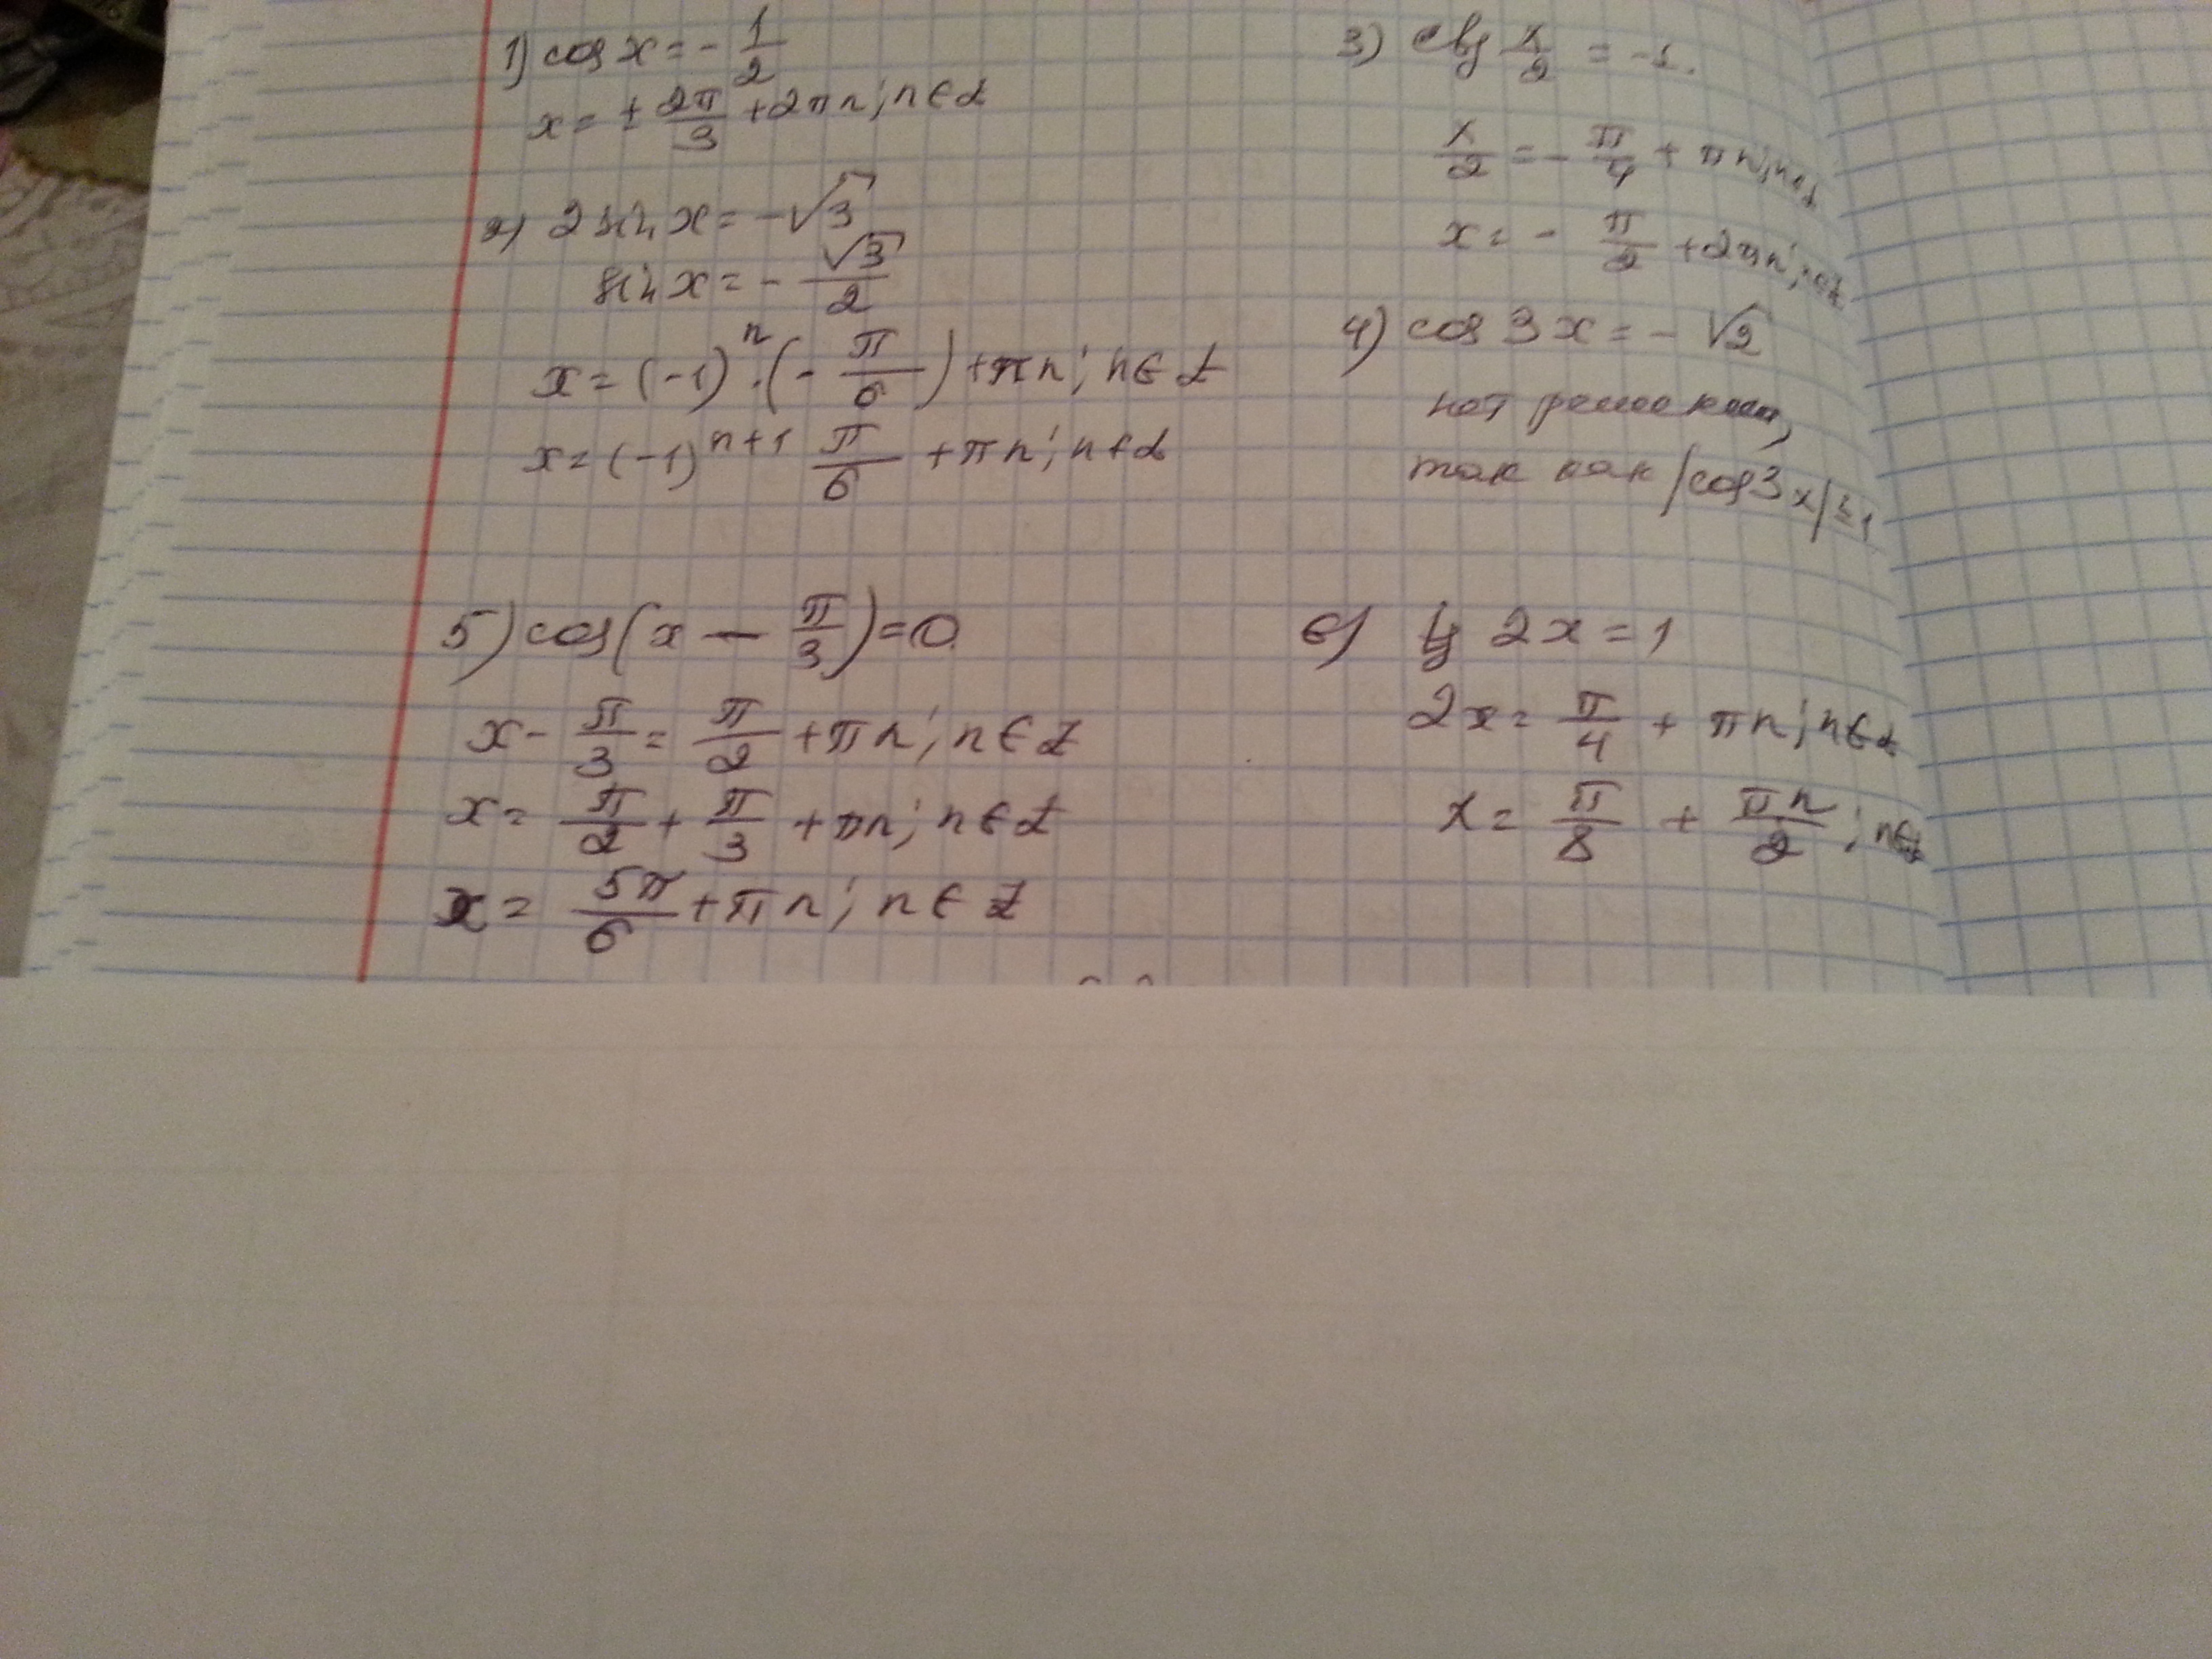 1) cos x = - 1/2
x = ± 2π/3 + 2πn; n∈Z
2) 2 sin x = -√3
sin x = - √3/2
x = (-1)^n · (- π/6) + πn; n∈Z
x = (-1)^(n+1) π/6 + πn; n∈Z
3) ctg x/2 = -1.
x/2 = - π/4 + πn; n∈Z
x = - π/2 + 2πn; n∈Z
4) cos 3x = - √2
нет решений,
так как |cos 3x| ≤ 1
5) cos(x - π/3) = 0
x - π/3 = π/2 + πn; n∈Z
x = π/2 + π/3 + πn; n∈Z
x = 5π/6 + πn; n∈Z
6) tg 2x = 1
2x = π/4 + πn; n∈Z
x = π/8 + πn/2; n∈Z